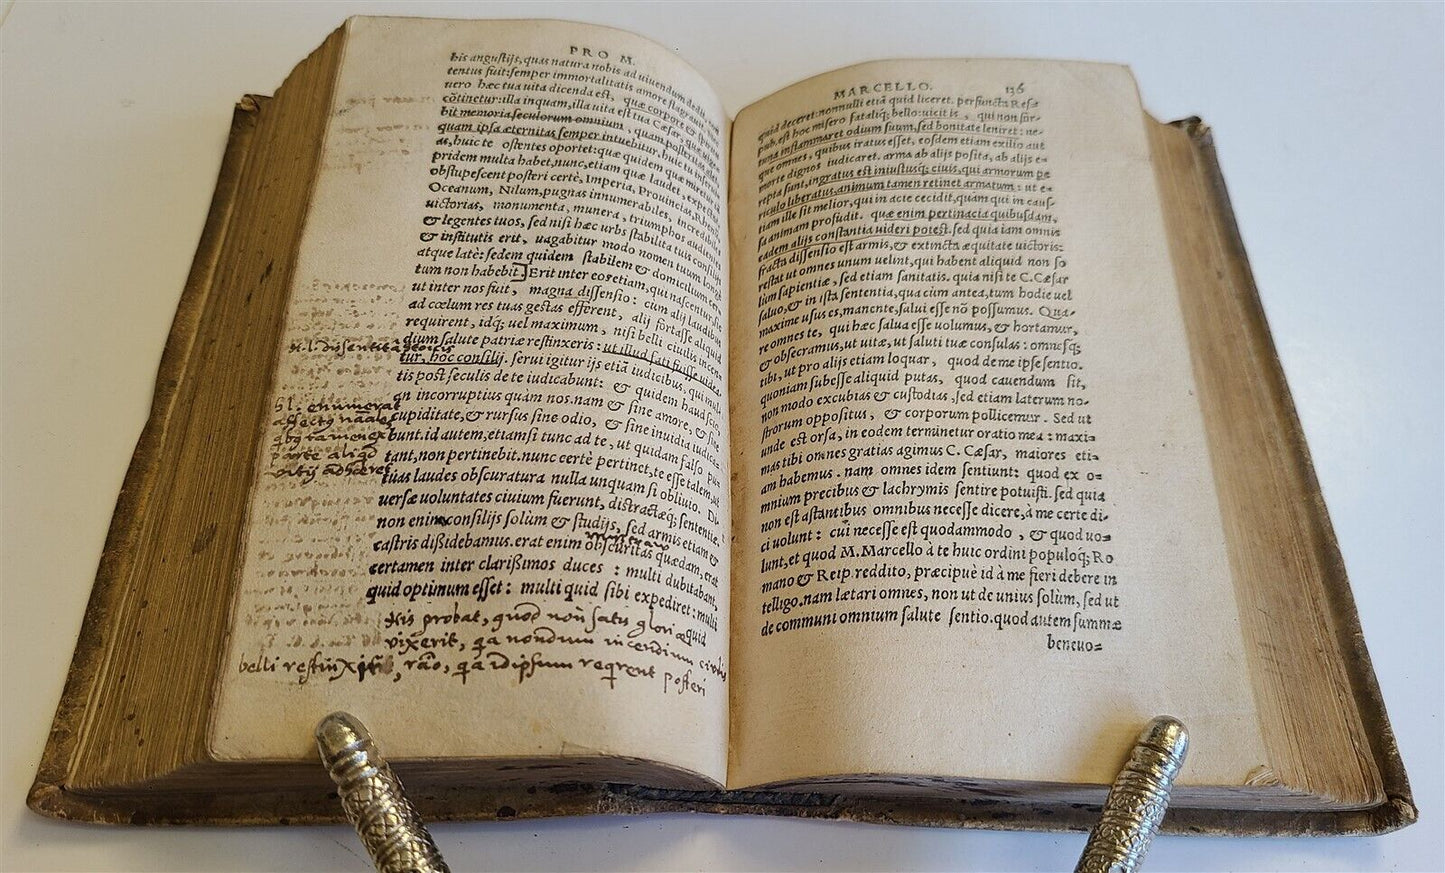 PRO M.
bis angustijs, quas natura nobis ad uiuendum dedit,
tentus fuit: semper immortalitatis amore flagrauit.
uero hæc tua uita dicenda est, quæ corpore & spiritu
cōtinetur: illa inquam, illa uita est tua Cæsar, quæ uige
bit memoria seculorum omnium, quam posteritas alet,
quam ipsa æternitas semper intuebitur, huic tu inseruias
as, huic te ostentes oportet: quæ quidem quæ miretur iā
pridem multa habet, nunc, etiam quæ laudet, expectat.
obstupescent posteri certè, Imperia, Prouincias, Rhenū,
Oceanum, Nilum, pugnas innumerabiles, incredibiles
uictorias, monumenta, munera, triumphos audientes
& legentes tuos, sed nisi hæc urbs stabilita tuis consilijs
& institutis erit, uagabitur modo nomen tuum longè
atque latè: sedem quidem stabilem & domicilium cer
tum non habebit. Erit inter eos etiam, qui nascentur, sic
ut inter nos fuit, magna dissensio: cùm alij laudibus
ad cœlum res tuas gestas efferent, alij fortasse aliquid
requirent, idq; uel maximum, nisi belli ciuilis incen
dium salute patriæ restinxeris: ut illud fati fuisse uidea
tur, hoc consilij. serui igitur ijs etiā iudicibus, qui mul
tis post seculis de te iudicabunt: & quidem haud scio,
an incorruptius quàm nos. nam & sine amore, & sine
cupiditate, & rursus sine odio, & sine inuidia iudica
bunt. id autem, etiamsi tunc ad te, ut quidam falso pu
tant, non pertinebit. nunc certè pertinet, te esse talem, ut
tuas laudes obscuratura nulla unquam si obliuio. Di
uersæ uoluntates ciuium fuerunt, distractæq; sententiæ.
non enim consilijs solùm & studijs, sed armis etiam &
castris dißidebamus. erat enim obscuritas quædam, erat
certamen inter clarißimos duces : multi dubitabant,
quid optimum esset: multi quid sibi expediret: multi
sl. enumerat
parte aliqd
vitij adhęret
his probat, quod non satis glori æquid
vixerit, qa nondum incendium civilis
belli restinxit, rāo, qa idipsum reqrent posteri
MARCELLO. 136
quid deceret: nonnulli etiā quid liceret. perfuncta Resp
pub. est hoc misero fataliq; bello: uicit is, qui non for-
tuna inflammaret odium suum, sed bonitate leniret: ne-
que omnes, quibus iratus esset, eosdem etiam exilio aut
morte dignos iudicaret. arma ab alijs posita, ab alijs e-
repta sunt, ingratus est iniustusq; ciuis, qui armorum pe
riculo liberatus, animum tamen retinet armatum: ut e-
tiam ille sit melior, qui in acie cecidit, quàm qui in caus-
sa animam profudit. quæ enim pertinacia quibusdam,
eadem alijs constantia uideri potest. sed quia iam omnis
fracta dissensio est armis, & extincta æquitate uictoris:
restat ut omnes unum uelint, qui habent aliquid non so
lùm sapientiæ, sed etiam sanitatis. quia nisi te C. Cæsar
saluo, & in ista sententia, qua cùm antea, tum hodie uel
maxime usus es, manente, salui esse nō possumus. Qua-
re omnes te, qui hæc salua esse uolumus, & hortamur,
& obsecramus, ut uitæ, ut saluti tuæ consulas: omnesq;
tibi, ut pro alijs etiam loquar, quod de me ipse sentio.
quoniam subesse aliquid putas, quod cauendum sit,
non modo excubias & custodias, sed etiam laterum no-
strorum oppositus, & corporum pollicemur. Sed ut
unde est orsa, in eodem terminetur oratio mea: maxi-
mas tibi omnes gratias agimus C. Cæsar, maiores eti-
am habemus. nam omnes idem sentiunt: quod ex o-
mnium precibus & lachrymis sentire potuisti. sed quia
non est astantibus omnibus necesse dicere, à me certe di-
ci uolunt: cui necesse est quodammodo, & quod uo-
lunt, et quod M. Marcello à te huic ordini populoq; Ro
mano & Reip. reddito, præcipuè id à me fieri debere in
telligo. nam lætari omnes, non ut de unius solùm, sed ut
de communi omnium salute sentio. quod autem summæ
beneuo-